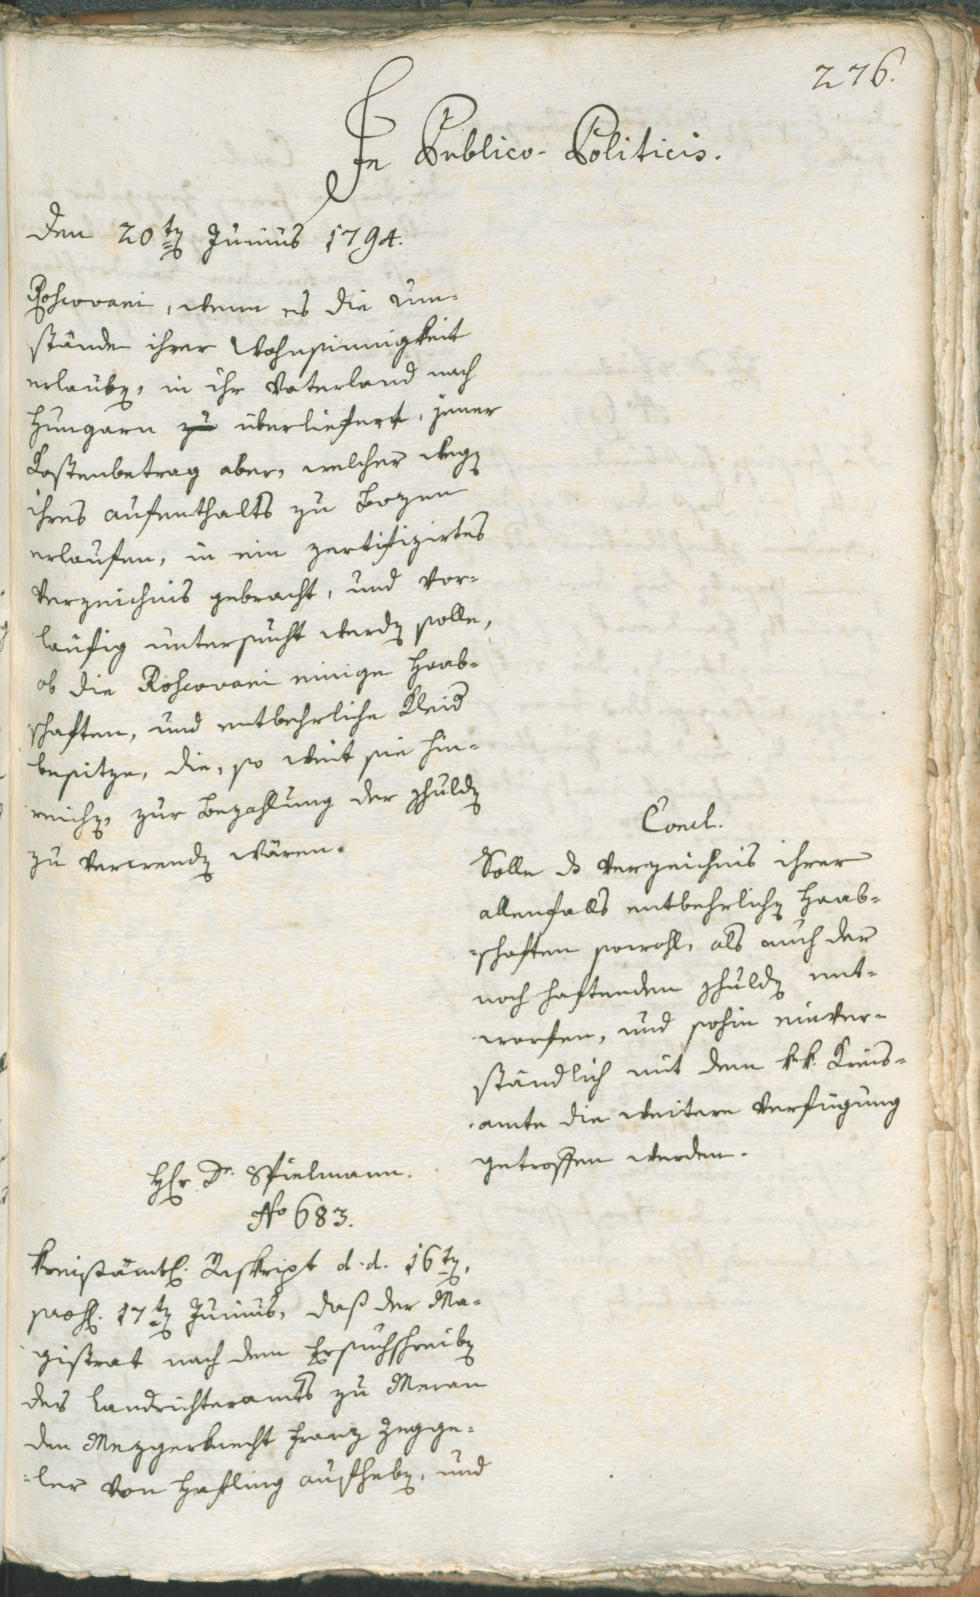 276.
In Publico-Politicis.
Den 20ten Junius 1794.
Roscovani, wenn es die Um=
stände ihrer Wahnsinnigkeit
erlauben, in ihr Vaterland nach
Hungarn zu überliefert, jener
Kostenbetrag aber, welcher wegen
ihres Aufenthalts zu Bozen
erlaufen, in ein zertifizirtes
Verzeichnis gebracht, und vor=
läufig untersucht werden solle,
ob die Roscovani einige Haab=
schaften, und entbehrliche Kleid
besitze, die, so weit sie hin=
reichen, zur Bezahlung der Schulden
zu verwenden wären.
Concl.
Solle ds Verzeichnis ihrer
allenfalls entbehrlichen Haab=
schaften sowohl, als auch der
noch haftenden Schulden ent=
worfen, und sohin einver=
ständlich mit dem kk. Kreis=
amte die weitere Verfügung
getroffen werden.
Hr. Dr. Spielmann.
No 683.
Kreisämtl. Reskript d. d. 16ten,
praes. 17ten Junius, daß der Ma=
gistrat nach dem Ersuchschreiben
des Landrichteramts zu Meran
den Mezgerknecht Franz Zegge=
=ler von Hafling aufheben, und